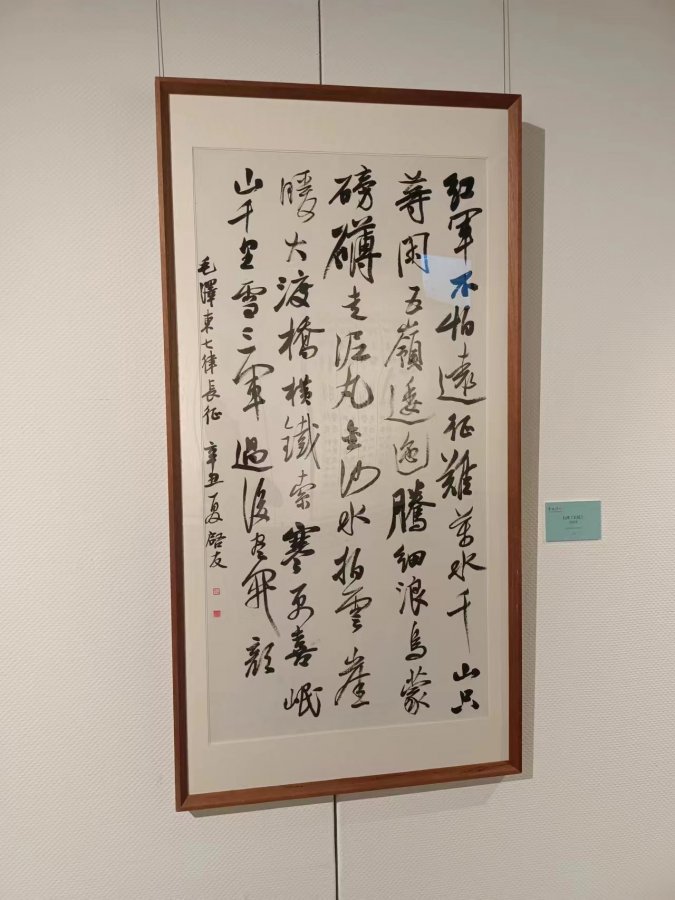 紅軍不怕遠征難萬水千山只
等閑五嶺逶迤騰細浪烏蒙
磅礴走泥丸金沙水拍雲崖
暖大渡橋橫鐵索寒更喜岷
山千里雪三軍過後盡開顏
毛澤東七律長征 辛丑夏啓友